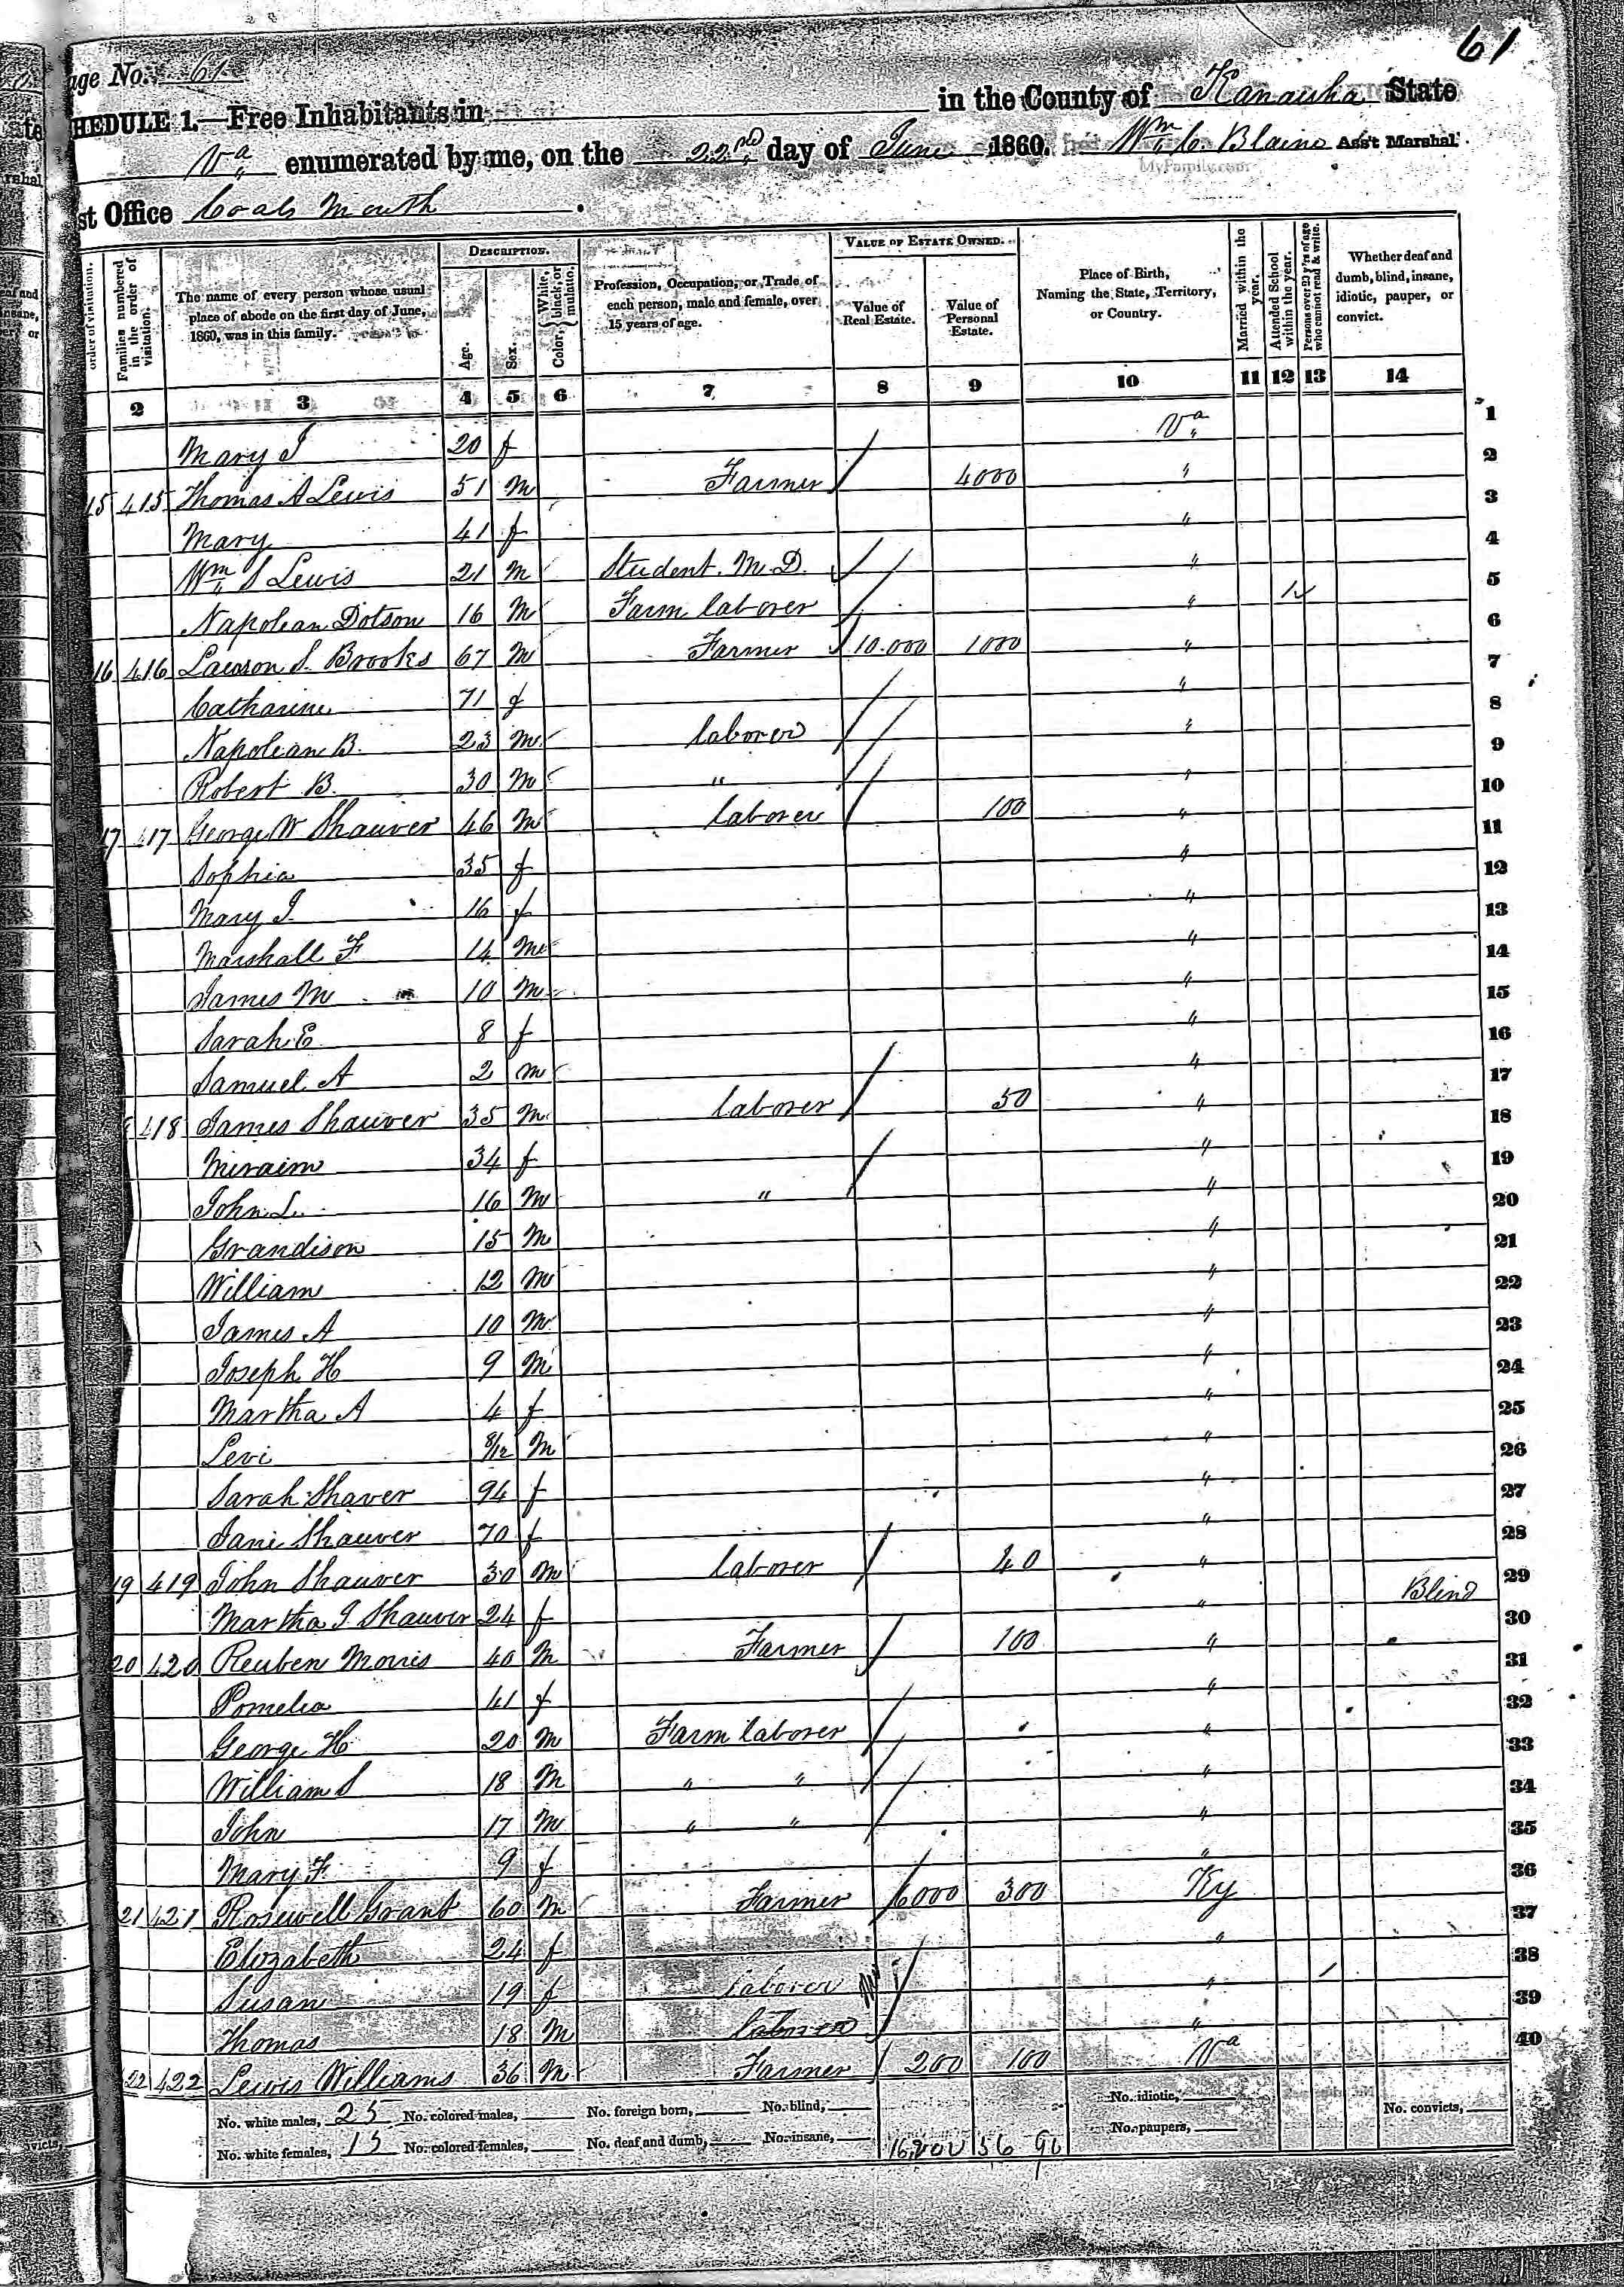 61
age No. 61
HEDULE 1.—Free Inhabitants in in the County of Kanawha State
Va enumerated by me, on the 22nd day of June 1860. Wm C Blaine Ass't Marshal.
MyFamily.com
st Office Coals Mouth.
order of visitation. Families numbered in the order of visitation. The name of every person whose usual place of abode on the first day of June, 1860, was in this family. Description. Age. Sex. Color, White, black, or mulatto. Profession, Occupation, or Trade of each person, male and female, over 15 years of age. Value of Estate Owned. Value of Real Estate. Value of Personal Estate. Place of Birth, Naming the State, Territory, or Country. Married within the year. Attended School within the year. Persons over 20 y'rs of age who cannot read & write. Whether deaf and dumb, blind, insane, idiotic, pauper, or convict.
2 3 4 5 6 7 8 9 10 11 12 13 14
Mary J 20 f Va 1
15 415 Thomas A Lewis 51 M Farmer / 4000 " 2
Mary 41 f " 3
Wm S Lewis 21 M Student. M.D. / " 4
Napolean Dotson 16 M Farm laborer / " 5
16 416 Lawson S. Brooks 67 M Farmer 10.000 1000 " 6
Catharine 71 f " 7
Napolean B. 23 M laborer / " 8
Robert B. 30 M " / " 9
17 417 George W Shauver 46 M laborer / 100 " 10
Sophia 35 f " 11
Mary J. 16 f " 12
Marshall F 14 M " 13
James M 10 M " 14
Sarah E 8 f " 15
Samuel A 2 M " 16
418 James Shauver 35 M laborer / 50 " 17
Miraim 34 f " 18
John L. 16 M " / " 19
Grandison 15 M " 20
William 12 M " 21
James A 10 M " 22
Joseph H 9 M " 23
Martha A 4 f " 24
Levi 8/12 M " 25
Sarah Shaver 94 f " 26
Jane Shauver 70 f " 27
19 419 John Shauver 30 M laborer / 40 " 28
Martha J Shauver 24 f " Blind 29
20 420 Reuben Morris 40 M Farmer / 100 " 30
Pomelia 41 f " 31
George H. 20 M Farm laborer / " 32
William S 18 M " " / " 33
John 17 M " " / " 34
Mary F. 9 f " 35
21 421 Rosewell Grant 60 M Farmer / 6000 300 Ky 36
Elizabeth 24 f " 37
Susan 19 f laborer " / 38
Thomas 18 M laborer / " 39
22 422 Lewis Williams 36 M Farmer / 200 100 Va 40
No. white males, 25 No. colored males, No. foreign born, No. blind, No. idiotic,
No. convicts,
No. white females, 15 No. colored females, No. deaf and dumb, No. insane, 16200 56 90 No. paupers,